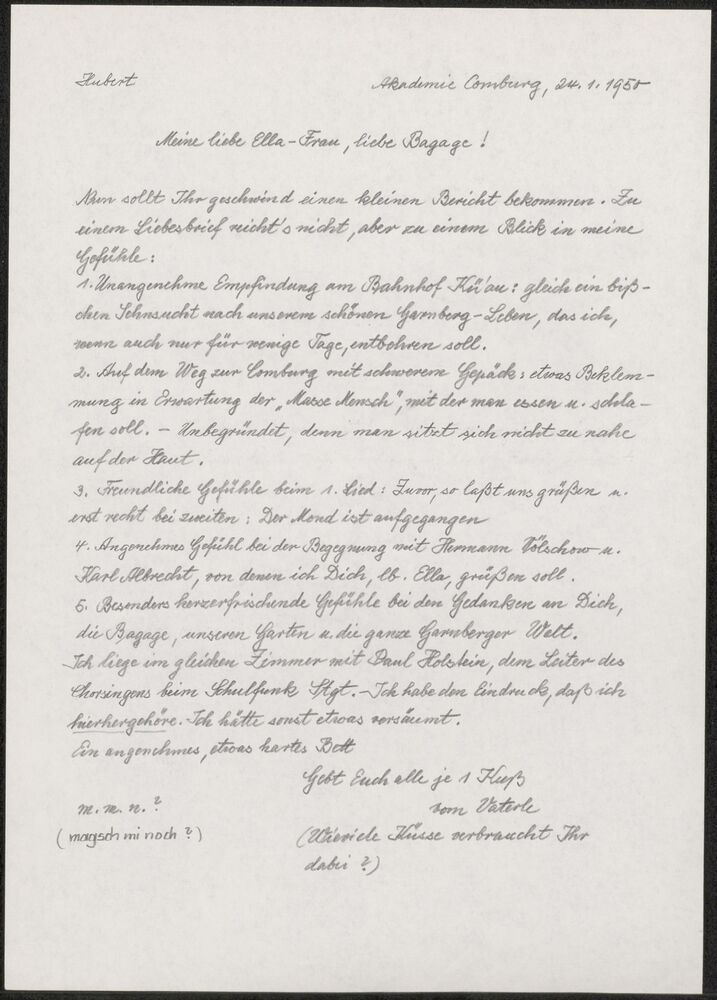 Hubert
Akademie Comburg, 24. 1. 1950
Meine liebe Ella-Frau, liebe Bagage!
Nun sollt Ihr geschwind einen kleinen Bericht bekommen. Zu
einem Liebesbrief reicht's nicht, aber zu einem Blick in meine
Gefühle:
1. Unangenehme Empfindung am Bahnhof Kü'au: gleich ein biß-
chen Sehnsucht nach unserem schönen Garnberg-Leben, das ich,
wenn auch nur für wenige Tage, entbehren soll.
2. Auf dem Weg zur Comburg mit schwerem Gepäck: etwas Beklem-
mung in Erwartung der „Masse Mensch", mit der man essen u. schla-
fen soll. - Unbegründet, denn man sitzt sich nicht zu nahe
auf der Haut.
3. Freundliche Gefühle beim 1. Lied: Zuvor, so laßt uns grüßen u.
erst recht bei zweiten: Der Mond ist aufgegangen
4. Angenehmes Gefühl bei der Begegnung mit Hermann Völschow u.
Karl Albrecht, von denen ich Dich, lb. Ella, grüßen soll.
5. Besonders herzerfrischende Gefühle bei den Gedanken an Dich,
die Bagage, unseren Garten u. die ganze Garnberger Welt.
Ich liege im gleichen Zimmer mit Paul Holstein, dem Leiter des
Chorsingens beim Schulfunk Stgt. - Ich habe den Eindruck, daß ich
hierhergehöre. Ich hätte sonst etwas versäumt.
Ein angenehmes, etwas hartes Bett
Gebt Euch alle je 1 Kuß
m. m. n.? vom Vaterle
(magsch mi noch?) (Wieviele Küsse verbraucht Ihr
dabei?)